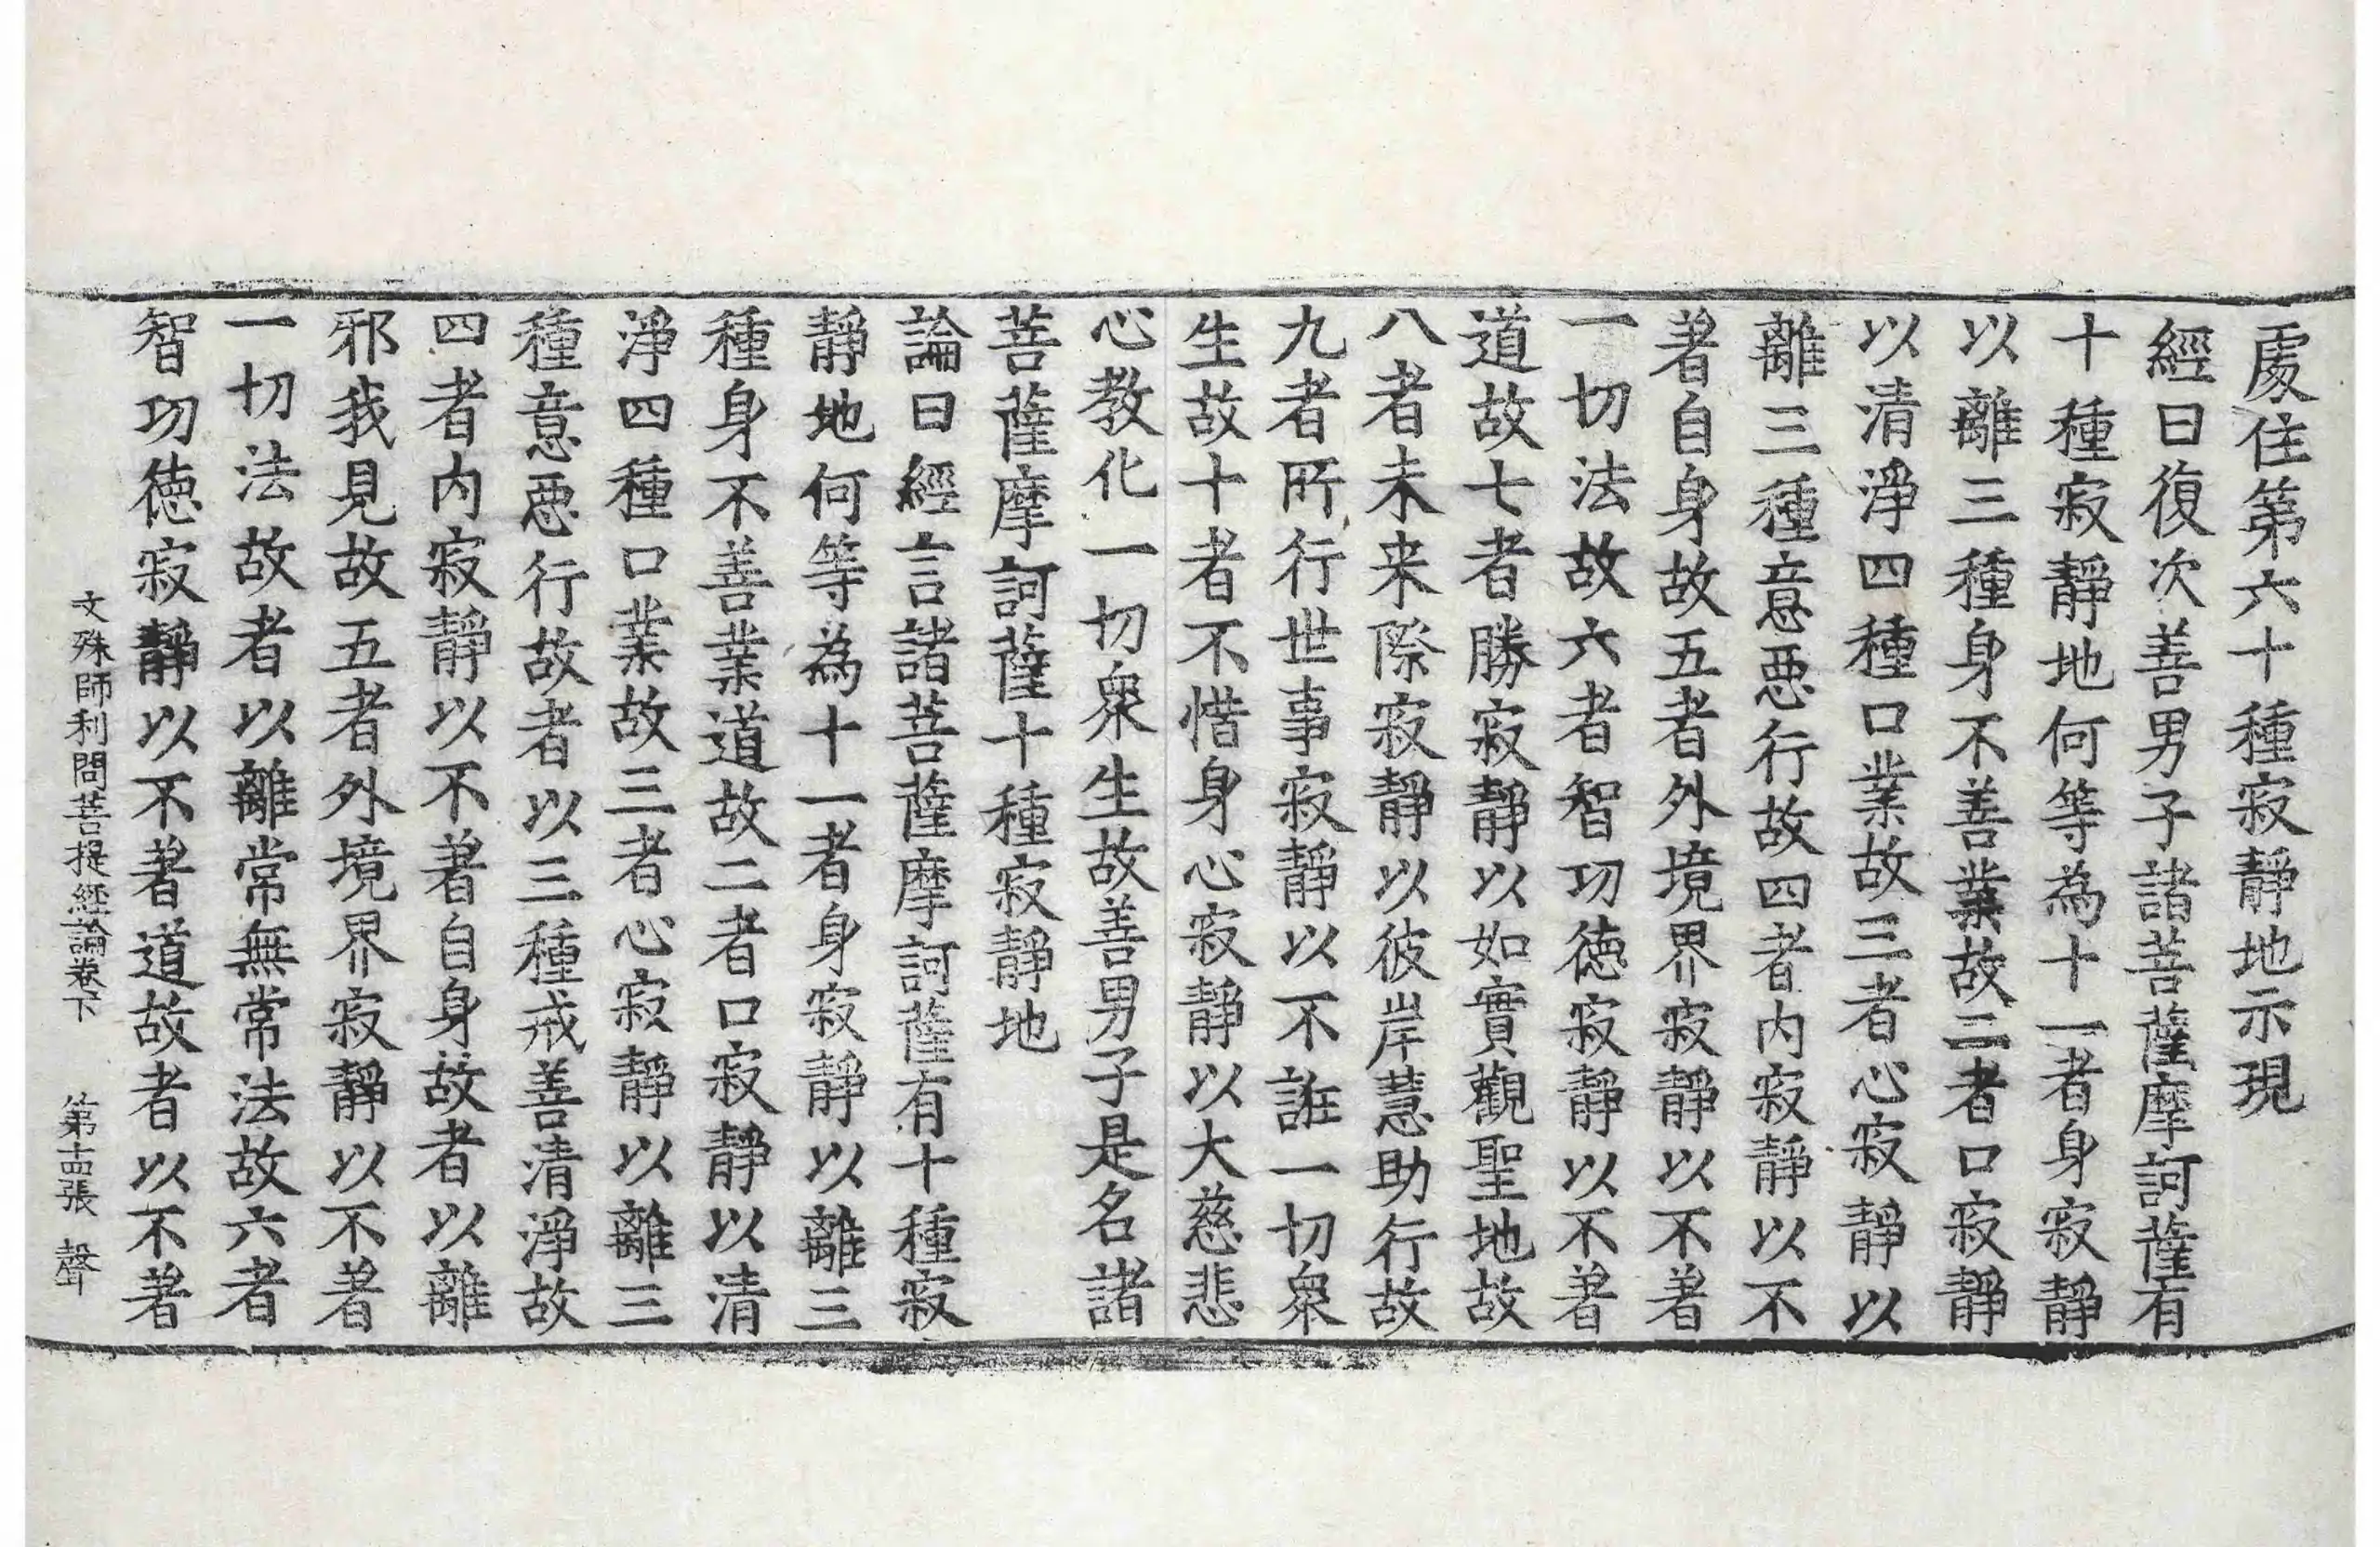 處住第六十種寂靜地示現
經曰復次善男子諸菩薩摩訶薩有
十種寂靜地何等為十一者身寂靜
以離三種身不善業故二者口寂靜
以清淨四種口業故三者心寂靜以
離三種意惡行故四者內寂靜以不
著自身故五者外境界寂靜以不著
一切法故六者智功德寂靜以不著
道故七者勝寂靜以如實觀聖地故
八者未来際寂靜以彼岸慧助行故
九者所行世事寂靜以不誑一切衆
生故十者不惜身心寂靜以大慈悲
心教化一切衆生故善男子是名諸
菩薩摩訶薩十種寂靜地
論曰經言諸菩薩摩訶薩有十種寂
靜地何等為十一者身寂靜以離三
種身不善業道故二者口寂靜以清
淨四種口業故三者心寂靜以離三
種意惡行故者以三種戒善清淨故
四者內寂靜以不著自身故者以離
邪我見故五者外境界寂靜以不著
一切法故者以離常無常法故六者
智功德寂靜以不著道故者以不著
文殊師利問菩提經論卷下 第十四張 聲